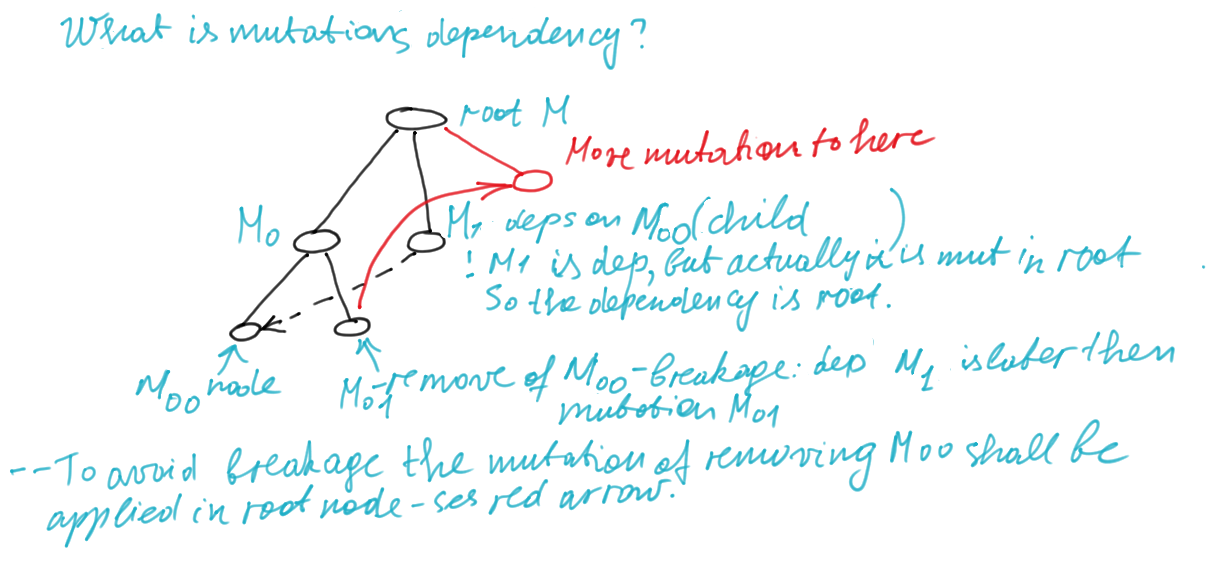 What is mutations dependency?
root M
More mutation to here
M0
M1 deps on M00 (child )
! M1 is dep, but actually it is mut in root
So the dependency is root.
M00 node
M01-remove of M00-breakage: dep M1 is later then
mutation M01
--To avoid breakage the mutation of removing M00 shall be
applied in root node-ses red arrow.